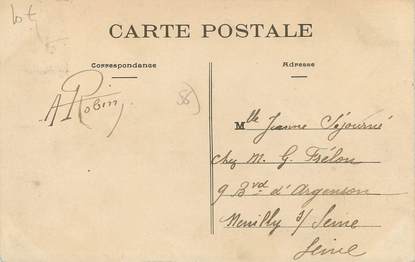 lot
CARTE POSTALE
Correspondance
Adresse
A Robin
56
Mlle Jeanne Séjourné
chez M. G. Frélon
9 Bvd d'Argenson
Neuilly s/ Seine
Seine